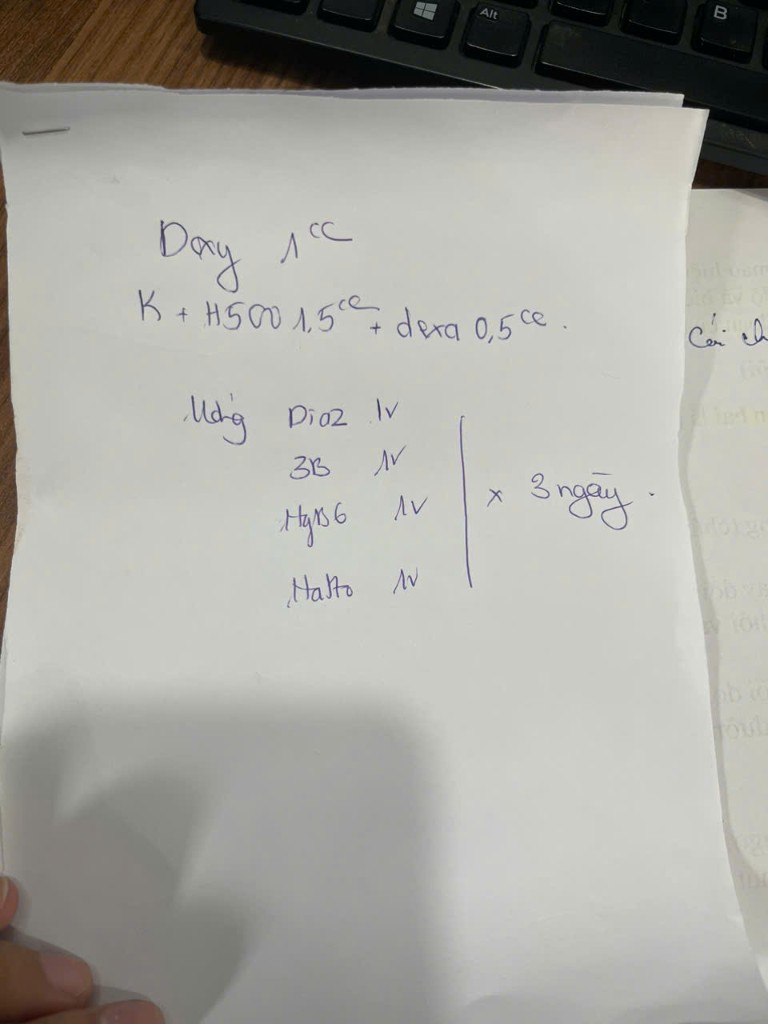 Alt
B
Doxy 1cc
K + H500 1,5cc + dexa 0,5cc.
Uống Dio2 1v
3B 1v
MgB6 1v
1v
x 3 ngày.